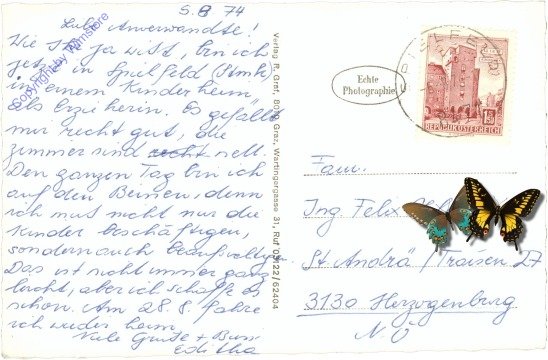 5.8.74
Liebe Anverwandte!
Wie Ihr ja wißt, bin ich
jetzt in Spielfeld (Stmk)
in einem Kinderheim
als Erzieherin. Es gefällt
mir recht gut, die
Zimmer sind nett.
Den ganzen Tag bin ich
auf den Beinen, denn
ich muß nicht nur die
Kinder beschäftigen,
sondern auch beaufsichtigen.
Das ist nicht immer ganz
leicht, aber ich schaffe es
schon. Am 28.8. fahre
ich wieder heim.
Viele Grüße + Bussi
Editha
Copyright by Wimstore
Verlag R. Graf, 8020 Graz, Wartingergasse 31, Ruf 03122/62404
Echte
Photographie
1.50
REPUBLIK ÖSTERREICH
Fam.
Ing Felix
St. Andrä /Traisen 27
3130 Herzogenburg
N.Ö